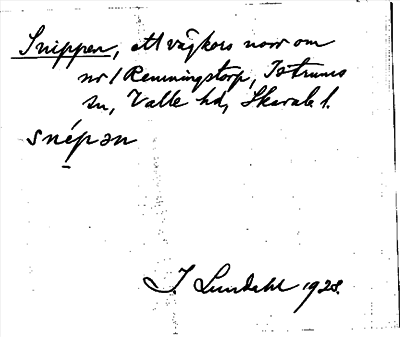 Snippen, ett vägkors norr om
nr 1 Remningstorp, Istrums
sn, Valle hd, Skarab. l.
snépən
J. Lundahl 1928.